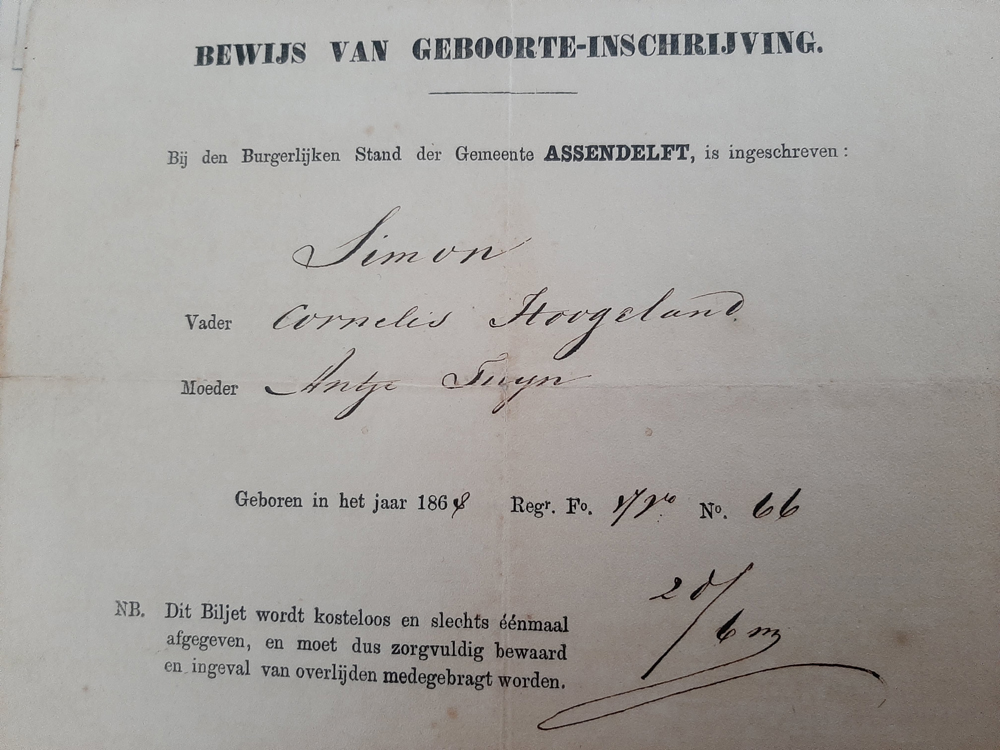 BEWIJS VAN GEBOORTE-INSCHRIJVING.
Bij den Burgerlijken Stand der Gemeente ASSENDELFT, is ingeschreven:
Simon
Vader Cornelis Hoogeland
Moeder Antje Tuyn
Geboren in het jaar 1868 Regr. Fo. No. 66
2 d/
6 m
NB. Dit Biljet wordt kosteloos en slechts éénmaal
afgegeven, en moet dus zorgvuldig bewaard
en ingeval van overlijden medegebragt worden.